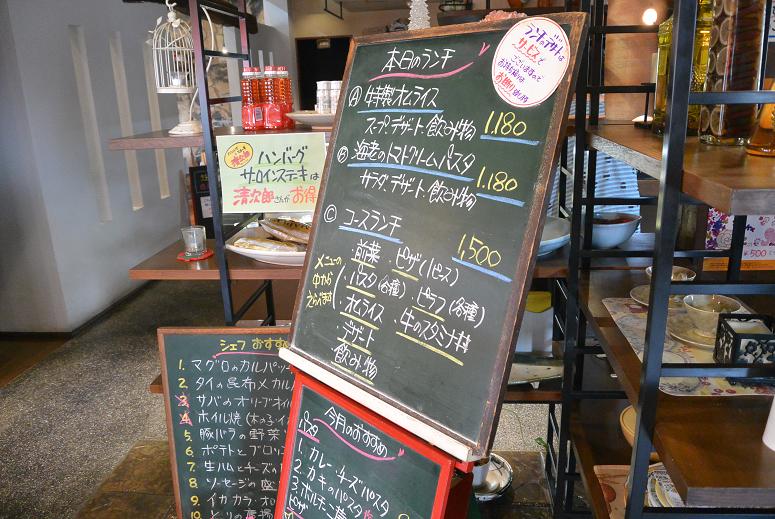 本日のランチ
Ⓐ 特製オムライス
スープ、デザート、飲み物 1,180
Ⓑ 海老のトマトクリームパスタ
サラダ、デザート、飲み物 1,180
Ⓒ コースランチ 1,500
・前菜 ・ピザ(1ピース)
メニューの中から
・パスタ(各種) ・ピラフ(各種)
・オムライス ・牛のスタミナ丼
・デザート
飲み物
ランチのデザートは
サービスと
ハンバーグ
サーロインステーキは
清次郎さんがお得
シェフ おすすめ
1. マグロのカルパッチ
2. タイの昆布メカル
3. サバのオリーブオイ
4. ホイル焼
5. 豚バラの野菜
6. ポテトとブロッコ
7. 生ハムとチーズの
8. ソーセージの盛
9. イカ カラ
今月のおすすめ
パスタ
1. カレーチーズパスタ
2. カキのパスタ
3. ポルチーニ
ピザ
¥500